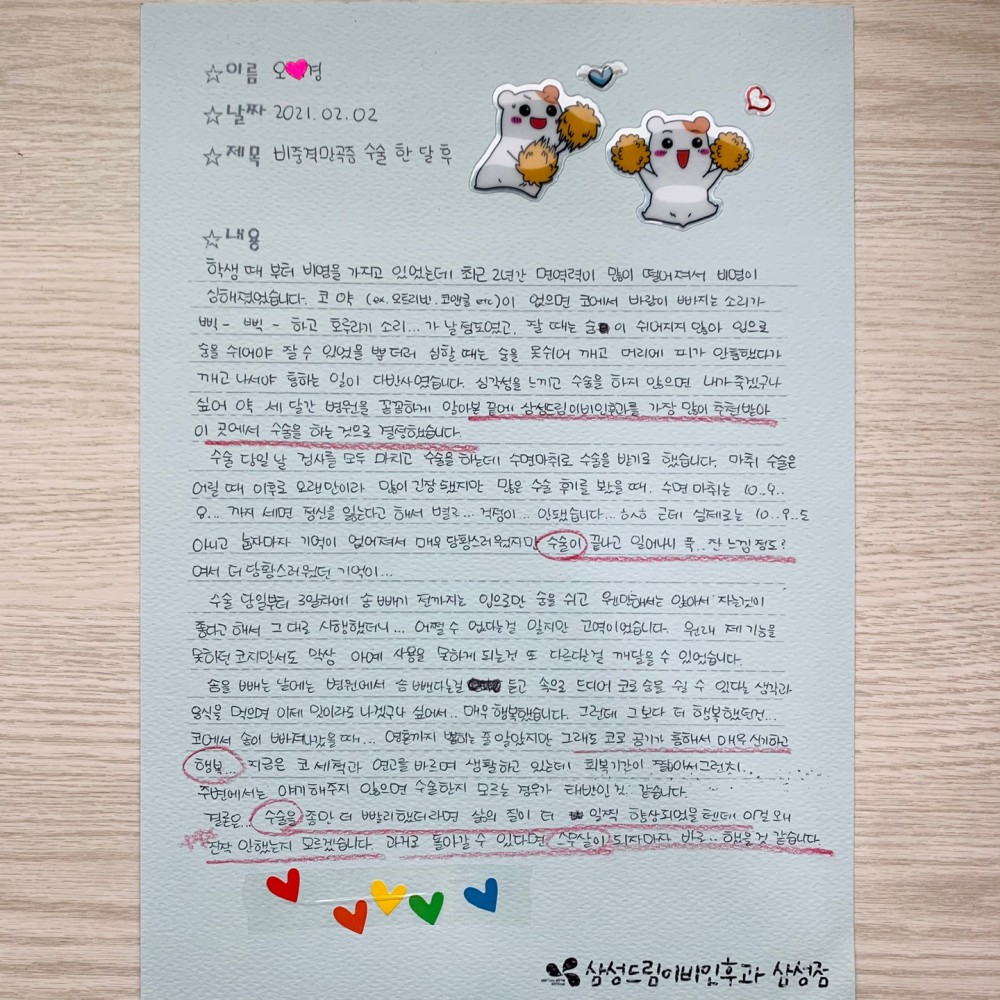 ☆이름 오♥경
☆날짜 2021.02.02
☆제목 비중격만곡증 수술 한 달 후
☆내용
학생 때 부터 비염을 가지고 있었는데 최근 2년간 면역력이 많이 떨어져서 비염이
심해졌었습니다. 코 약 (ex. 오트리빈. 코앤쿨 etc)이 없으면 코에서 바람이 빠지는 소리가
삑- 삑- 하고 호루라기 소리...가 날 정도였고, 잘 때는 숨이 쉬어지지 않아 입으로
숨을 쉬어야 잘 수 있었을 뿐더러 심할 때는 숨을 못쉬어 깨고 머리에 피가 안통했다가
깨고 나서야 통하는 일이 다반사였습니다. 심각성을 느끼고 수술을 하지 않으면 내가 죽겠구나
싶어 약 세 달간 병원을 꼼꼼하게 알아본 끝에 삼성드림이비인후과를 가장 많이 추천받아
이 곳에서 수술을 하는 것으로 결정했습니다.
수술 당일 날 검사를 모두 마치고 수술을 하는데 수면마취로 수술을 받기로 했습니다. 마취 수술은
어릴 때 이후로 오랜만이라 많이 긴장 됐지만 많은 수술 후기를 봤을 때, 수면 마취는 10..9..
8... 까지 세면 정신을 잃는다고 해서 별로... 걱정이... 안됐습니다... ㅎㅅㅎ 근데 실제로는 10..9..도
아니고 눕자마자 기억이 없어져서 매우 당황스러웠지만 수술이 끝나고 일어나니 푹.. 잔 느낌 정도?
여서 더 당황스러웠던 기억이...
수술 당일부터 3일차에 솜 빼기 전까지는 입으로만 숨을 쉬고 웬만해서는 앉아서 자는것이
좋다고 해서 그대로 시행했더니... 어쩔 수 없다는걸 알지만 고역이었습니다. 원래 제 기능을
못하던 코지만서도 막상 아예 사용을 못하게 되는건 또 다르다는걸 깨달을 수 있었습니다.
솜을 빼는 날에는 병원에서 솜 뺀다는걸 듣고 속으로 드디어 코로 숨을 쉴 수 있다는 생각과
음식을 먹으면 이제 맛이라도 나겠구나 싶어서.. 매우 행복했습니다. 그런데 그보다 더 행복했던건...
코에서 솜이 빠져나갔을 때... 영혼까지 뽑히는 줄 알았지만 그래도 코로 공기가 통해서 매우 신기하고
행복... 지금은 코 세척과 연고를 바르며 생활하고 있는데 회복기간이 짧아서그런지...
주변에서는 얘기해주지 않으면 수술한지 모르는 경우가 태반인 것 같습니다.
결론은... 수술을 좀만 더 빨리했더라면 삶의 질이 더 일찍 향상되었을텐데 이걸 왜
진작 안했는지 모르겠습니다. 과거로 돌아갈 수 있다면 스무살이 되자마자 바로.. 했을 것 같습니다
삼성드림이비인후과 삼성점